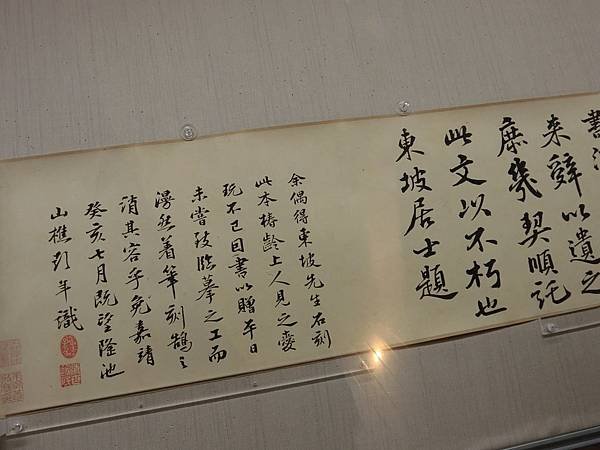 書
来辭以遺之
庶幾契順託
此文以不朽也
東坡居士題
余偶得東坡先生石刻
此本檮齡上人見之愛
玩不已因書以贈平日
未嘗致臨摹之工而
漫然着筆刻鵠之
誚其容乎免嘉靖
癸亥七月既望隆池
山樵彭年識